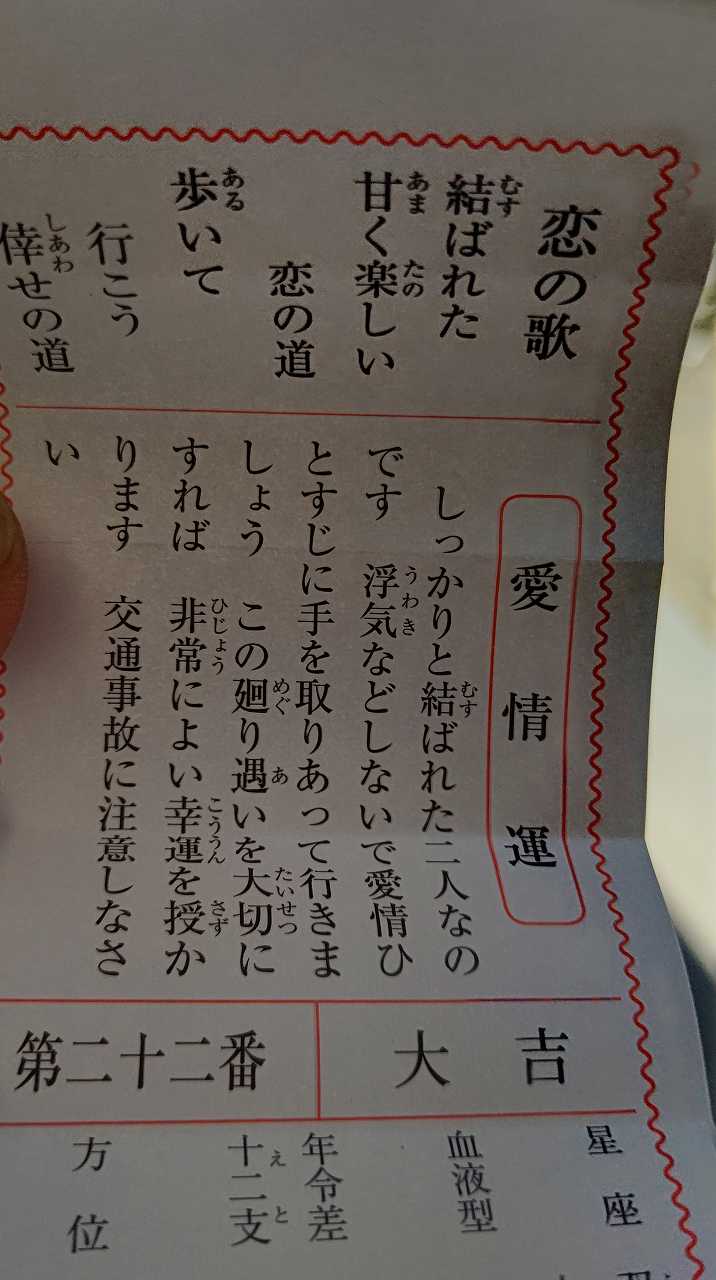 恋の歌
結ばれた
甘く楽しい
恋の道
歩いて
行こう
倖せの道
愛情運
しっかりと結ばれた二人なの
です 浮気などしないで愛情ひ
とすじに手を取りあって行きま
しょう この廻り遇いを大切に
すれば 非常によい幸運を授か
ります 交通事故に注意しなさ
い
大吉
第二十二番
星座
血液型
年令差
十二支
方位